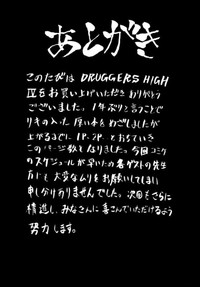 あとがき
このたびは DRUGGERS HIGH
IVをお買い上げいただき ありがとう
ございました。1年ぶりと言うことで
リキの入った厚い本をめざしましたが
上がるまでに
このページ数となりました。今回コミケ
のスケジュールが早いため各ゲストの先生
方にも大変なムリをお願いしてしまい
申し分けありませんでした。次回もさらに
精進し、みなさんに喜こんでいただけるよう
努力します。